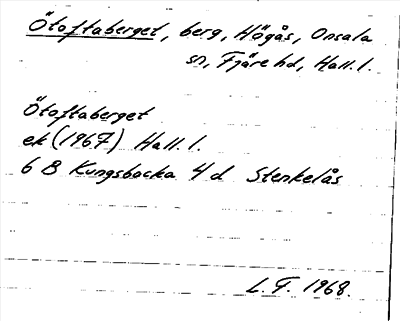 Ötoftaberget, berg, Högås, Onsala
sn, Fjäre hd, Hall. l.
Ötoftaberget
ek (1967) Hall. l.
6 B Kungsbacka 4 d Stenkelås
L. F. 1968.